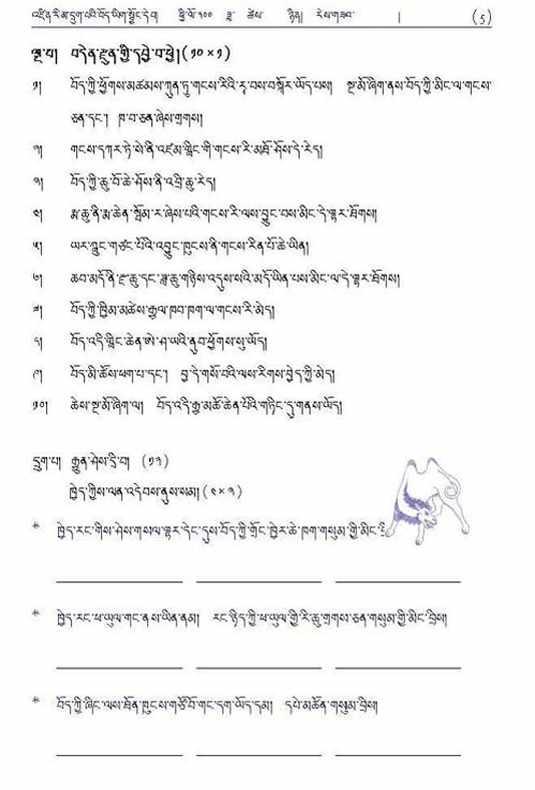 འཛིན་རིམ་དྲུག་པའི་བོད་ཡིག་སྦྱོང་དེབ། ཕྱི་ལོ་༢༠༠ ཟླ་ ཚེས་ ཉིན། རེས་གཟའ་ | (༥)
ལྔ་པ། བདེན་རྫུན་གྱི་དབྱེ་བ་ཕྱེ། (༡༠×༡)
༡། བོད་ཀྱི་ཕྱོགས་མཚམས་ཀུན་ཏུ་གངས་རིའི་ར་བས་བསྐོར་ཡོད་པས། སྔ་མོ་ཞིག་ནས་བོད་ཀྱི་མིང་ལ་གངས་
ཅན་དང་། ཁ་བ་ཅན་ཞེས་གྲགས།
༢། གངས་དཀར་ཏེ་སེ་ནི་འཛམ་གླིང་གི་གངས་རི་མཐོ་ཤོས་དེ་རེད།
༣། བོད་ཀྱི་ཆུ་བོ་ཆེ་ཤོས་ནི་འབྲི་ཆུ་རེད།
༤། རྨ་ཆུ་ནི་རྨ་ཆེན་སྤོམ་ར་ཞེས་པའི་གངས་རི་ལས་བྱུང་བས་མིང་དེ་ལྟར་ཐོགས།
༥། ཡར་ཀླུང་གཙང་པོའི་འབྱུང་ཁུངས་ནི་གངས་རིན་པོ་ཆེ་ཡིན།
༦། ཆབ་མདོ་ནི་ངོ་ཆུ་དང་རྫ་ཆུ་གཉིས་འདུས་སའི་མདོ་ཡིན་པས་མིང་ལ་དེ་ལྟར་ཐོགས།
༧། བོད་ཀྱི་ཁྱིམ་མཚེས་རྒྱལ་ཁབ་ཁག་ལ་གངས་རི་མེད།
༨། བོད་འདི་གླིང་ཆེན་ཨེ་ཤ་ཡའི་ནུབ་ཕྱོགས་སུ་ཡོད།
༩། བོད་མི་ཚོས་ཕག་པ་དང་། བྱ་དེ་གསོ་བའི་ལས་རིགས་བྱེད་ཀྱི་མེད།
༡༠། ཆེས་སྔ་མོ་ཞིག་ལ། བོད་འདི་རྒྱ་མཚོ་ཆེན་པོའི་གཏིང་དུ་གནས་ཡོད།
དྲུག་པ། རྒྱུན་ཤེས་དྲི་བ། (༡༣)
ཁྱེད་ཀྱིས་ལན་འདེབས་ནུས་སམ། (༤×༣)
* ཁྱེད་རང་གིས་ཤེས་གསལ་ལྟར་དེང་དུས་བོད་ཀྱི་གྲོང་ཁྱེར་ཆེ་ཁག་གསུམ་གྱི་མིང་
* ཁྱེད་རང་ཕ་ཡུལ་གང་ནས་ཡིན་ནམ། རང་ཉིད་ཀྱི་ཕ་ཡུལ་གྱི་རི་ཆུ་གྲགས་ཅན་གསུམ་གྱི་མིང་བྲིས།
* བོད་ཀྱི་ཞིང་ལས་ཐོན་ཁུངས་གཙོ་བོ་གང་དག་ཡོད་དམ། དཔེ་མཚོན་གསུམ་བྲིས།